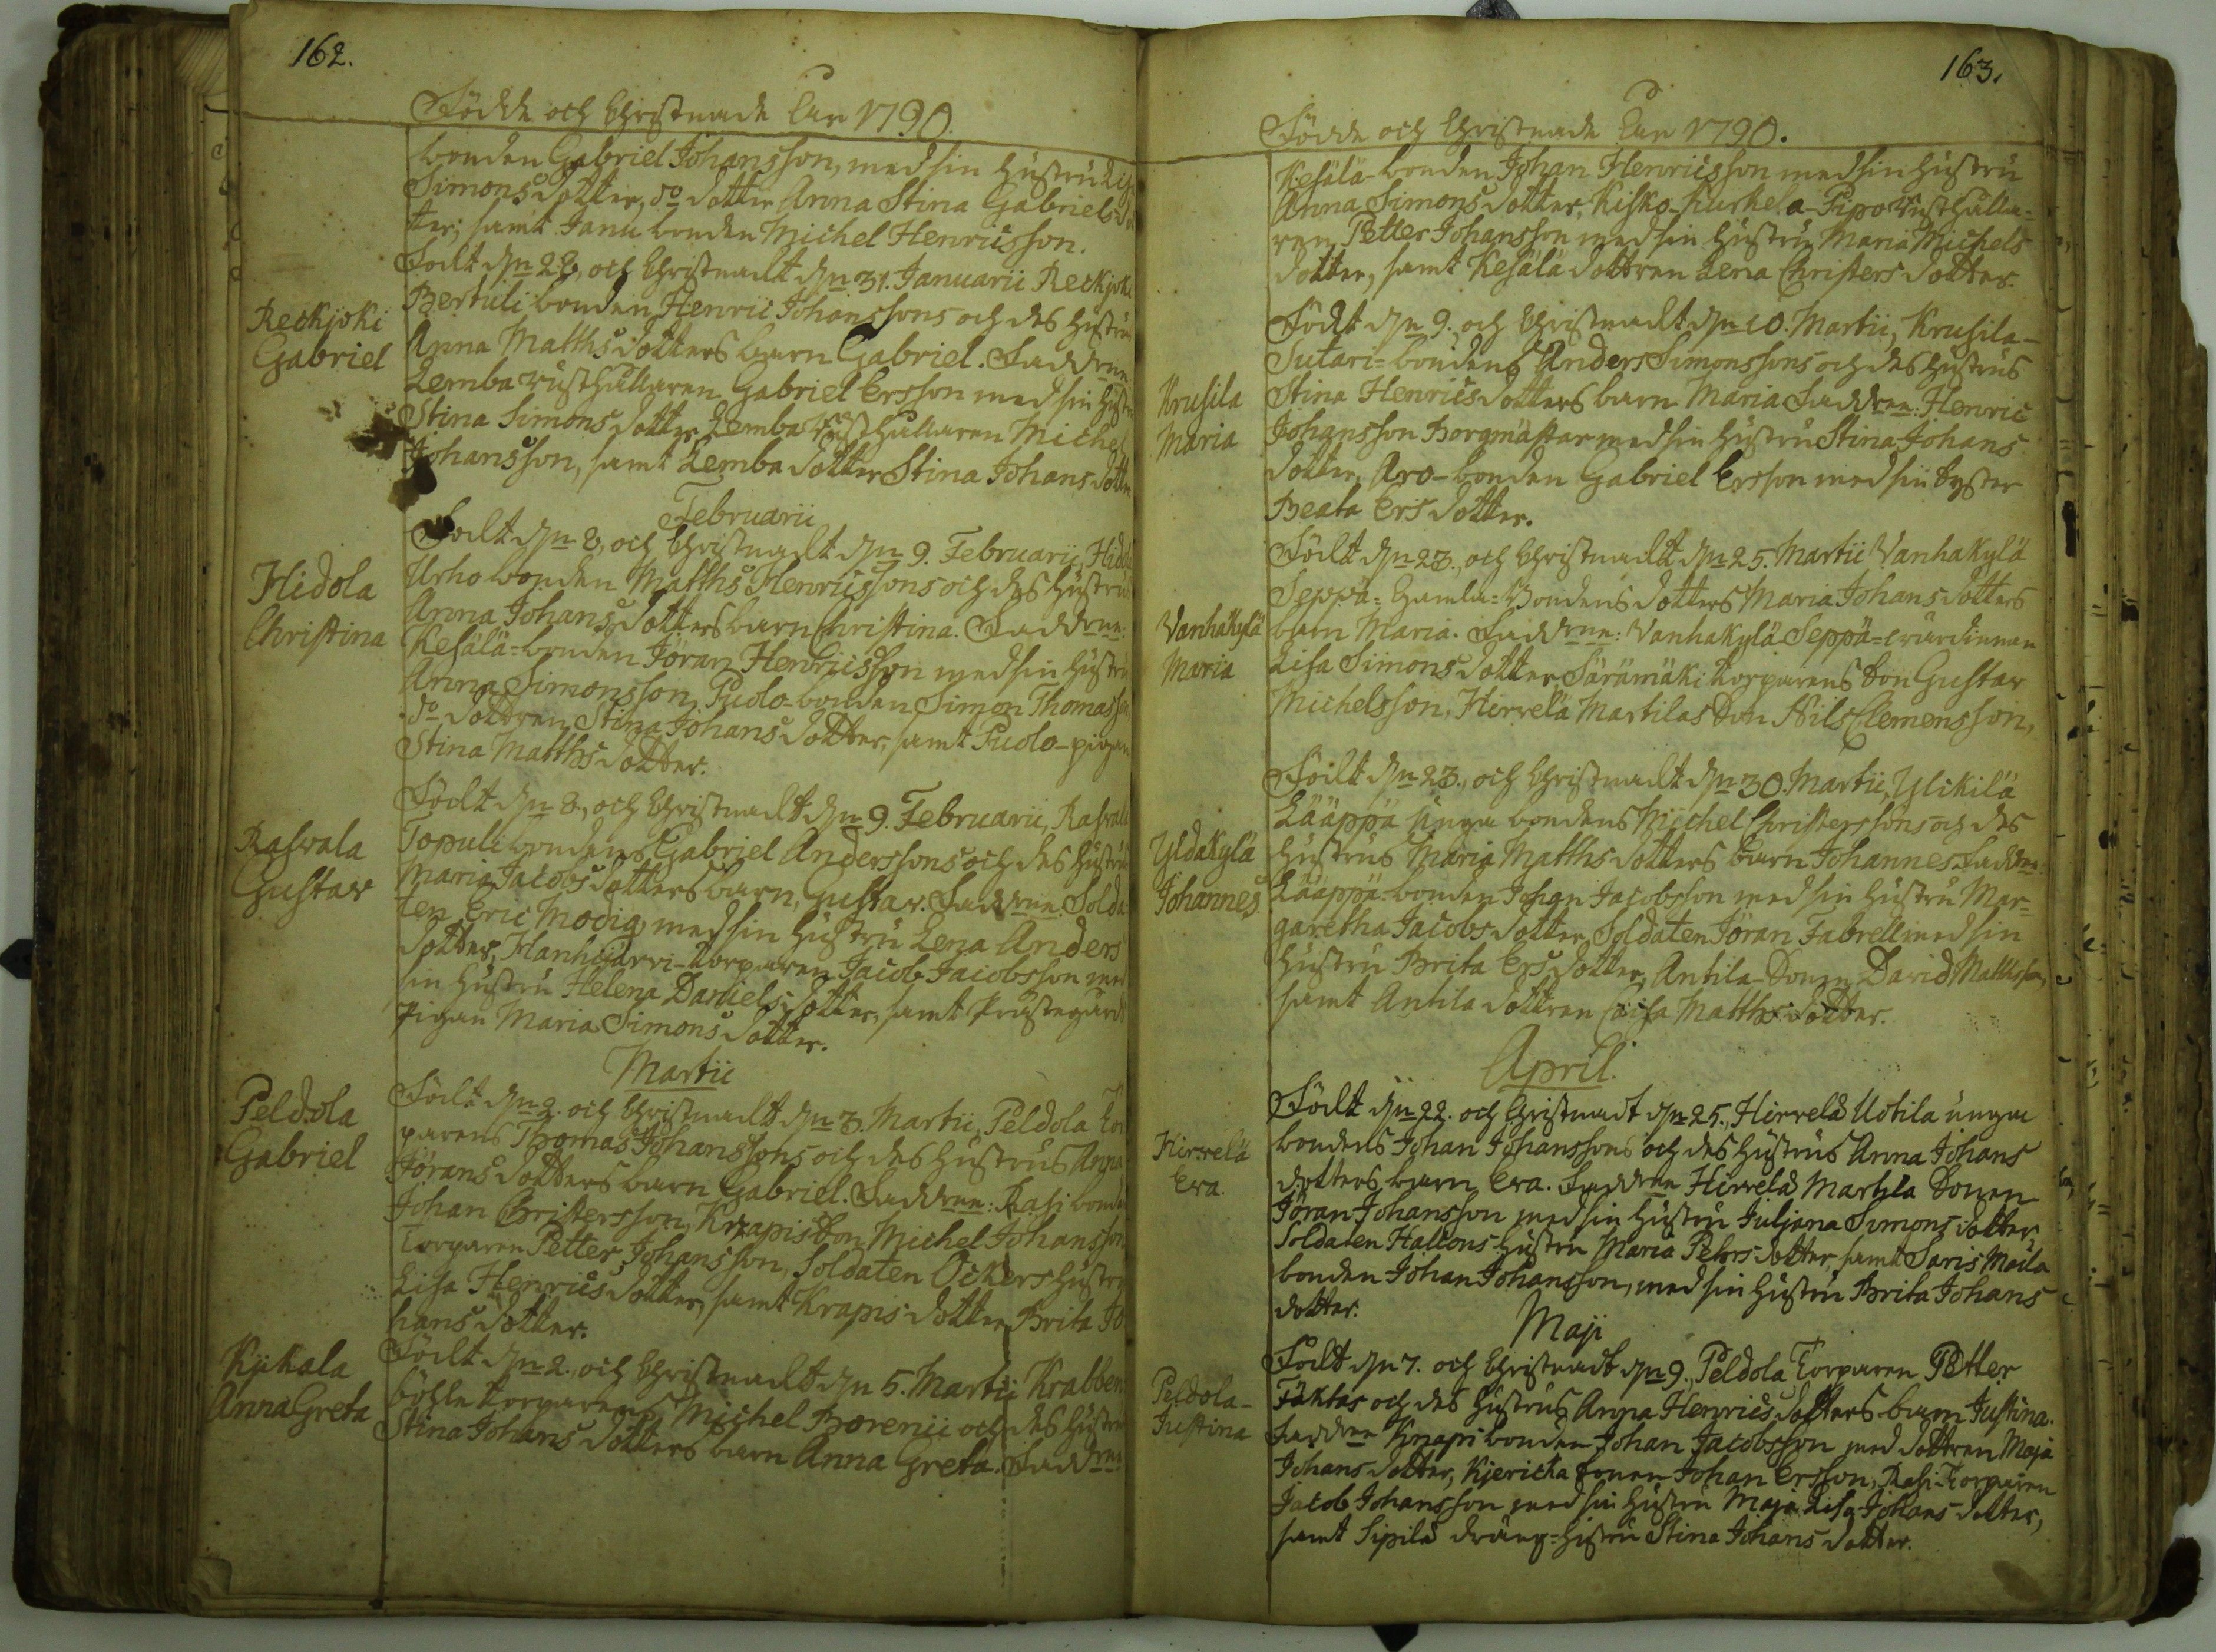 162.
Födde och Christnade Åhr 1790.
bonden Gabriel Johansson, med sin hustru Lisa
Simonsdotter, do dotter Anna Stina Gabriels dot
ter; samt Janu bonden Michel Henricsson.
Reckijoki
Gabriel
Födt den 28, och Christnadt den 31. Januarii Reckjoki
Bertuli bonden Henric Johanssons och des hustrus
Anna Matthsdotters barn Gabriel. Faddrne:
Lemba rusthållaren Gabriel Ersson med sin hustru
Stina Simonsdotter Lemba rusthållaren Michel
Johansson, samt Lemba dotter Stina Johansdotter
Februarii
Hidola
Christina
Födt den 8, och Christnadt den 9. Februarii, Hidola
Urho bonden Matths Henricssons och des hustrus
Anna Johansdotters barn Christina. Faddrne:
Kesälä-bonden Jöran Henricsson med sin hustru
Anna Simonsson, Pudo-bonden Simon Thomasson
do dottren Stina Johansdotter, samt Pudo-pigan
Stina Matthsdotter.
Rasvala
Gustav
Födt den 8., och Christnadt den 9. Februarii, Rasvala
Topuli bondens Gabriel Anderssons och des hustrus
Maria Jacobsdotters barn, Gustav. Faddrne. Solda
ten Eric Modig med sin hustru Lena Anders
dotter, Manhijärvi-torparen Jacob Jacobsson med
sin hustru Helena Danielsdotter, samt Prästegårds
Pigan Maria Simonsdotter.
Martii
Peldola
Gabriel
Födt den 2. och Christnadt den 3. Martii, Peldola Tor
parens Thomas Johanssons och des hustrus Anna
Jöransdotters barn Gabriel. Faddrne: Rasi bonden
Johan Christersson, Krapis Son Michel Johansson
Torparen Petter Johansson, Soldaten Ockers hustru
Lisa Henricsdotter, samt Krapis dotter Brita Jo
hansdotter.
Kijkala
Anna Greta
Födt den 2. och Christnadt den 5. Martii Krabben
böhle torparens Michel Borenii och des hustrus
Stina Johansdotters barn Anna Greta. Faddrne
163.
Födde och Christnade Åhr 1790.
Kesälä-bonden Johan Henricsson med sin hustru
Anna Simonsdotter, Kisko-Kurkela-Pipo rusthålla-
ren Petter Johansson med sin hustru Maria Michels
dotter, samt Kesälä dottren Lena Christersdotter.
Krusila
Maria
Födt den 9. och Christnadt den 10. Martii, Krusila-
Sutari-bondens Anders Simonssons och des hustrus
Stina Henricsdotters barn Maria Faddrne: Henric
Johansson Borgmästar med sin hustru Stina Johans
dotter, Aro-bonden Gabriel Ersson med sin syster
Beata Ersdotter.
Vanhakylä
Maria
Födt den 23., och Christnadt den 25. Martii Vanhakylä
Seppä-Gamla-Bondens dotters Maria Johansdotters
barn Maria. Faddrne: Vanhakylä Seppä-värdinnan
Lisa Simonsdotter Säramäki torparens Son Gustav
Michelsson, Hirrelä Martilas Son Nils Clemensson,
Yldakylä
Johannes
Födt den 23., och Christnadt den 30. Martii, Ylikilä
Lääppä unga bondens Michel Christerssons och des
hustrus Maria Matthsdotters barn Johannes. Faddrne:
Lääppä-bonden Johan Jacobsson med sin hustru Mar-
garetha Jacobsdotter, Soldaten Jöran Fabrell med sin
hustru Brita Ersdotter, Antila-Sonen David Matthsson,
samt Antila dottren Caisa Matthsdotter.
April.
Hirrelä
Eva.
Födt den 22. och Christnadt den 25., Hirrelä Uotila unga
bondens Johan Johanssons och des hustrus Anna Johans
dotters barn Eva. Faddrne Hirrelä Martila Sonen
Jöran Johansson med sin hustru Juljana Simonsdotter,
Soldaten Hallons hustru Maria Pehrsdotter, samt Saris Maila
bonden Johan Johansson, med sin hustru Brita Johans
dotter.
Maji
Peldola-
Justina
Födt den 7. och Christnadt den 9., Peldola Torparen Petter
Fäktas och des hustrus Anna Henricsdotters barn Justina.
Faddrne Knapi bonden Johan Jacobsson med dottren Maja
Johansdotter, Kjericka sonen Johan Ersson, Rasi-Torparen
Jacob Johansson med sin hustru Maja Lisa Johans dotter,
samt Sipilä dräng-hustru Stina Johans dotter.